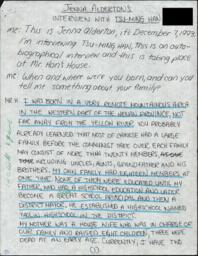 JENNA ALDERTON'S
INTERVIEW WITH TSU-MING HAN
me: This is Jenna Alderton, it's December 7, 1993.
I'm interviewing Tsu-Ming Han, this is an auto-
biographical interview and this is taking place
at Mr. Han's House.
me: When and where were you born, and can you
tell me something about your family?
MR H: I WAS BORN IN A VERY REMOTE MOUNTAINOUS AREA
IN THE WESTERN PART OF THE HENAN PROVINCE, NOT
FAR AWAY FROM THE YELLOW RIVER. YOU PROBABLY
ALREADY LEARNED THAT MOST OF CHINESE HAD A LARGE
FAMILY BEFORE THE COMMUNIST TAKE OVER. EACH FAMILY
CONSIST OF MORE THAN TWENTY MEMBERS,
INCLUDING UNCLES, AUNTS, GRANDFATHER AND HIS
BROTHERS. MY OWN FAMILY HAD EIGHTEEN MEMBERS AT
ONE TIME. NONE OF THEM WERE EDUCATED UNTIL MY
FATHER, WHO HAD A HIGHSCHOOL EDUCATION AND LATER
BECOME A GREAT SCHOOL PRINCIPAL AND THEN A
DISTRICT HE ESTABLISHED A HIGHSCHOOL NAMED
HIGHSCHOOL IN THE DISTRICT.
MY MOTHER WAS A HOUSE WIFE WHO WAS IN CHARGE OF
OUR FAMILY AND RAISED EIGHT CHILDREN. THREE WAS
DEAD AT AN EARLY AGE. CURRENTLY, I HAVE TWO
(1)